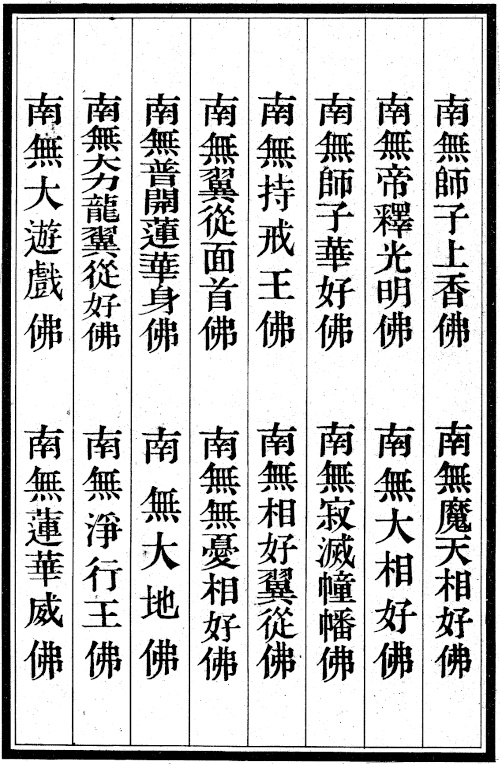 南無師子上香佛
南無魔天相好佛
南無帝釋光明佛
南無大相好佛
南無師子華好佛
南無寂滅幢幡佛
南無持戒王佛
南無相好翼從佛
南無翼從面首佛
南無無憂相好佛
南無普開蓮華身佛
南無大地佛
南無大力龍翼從好佛
南無淨行王佛
南無大遊戲佛
南無蓮華威佛